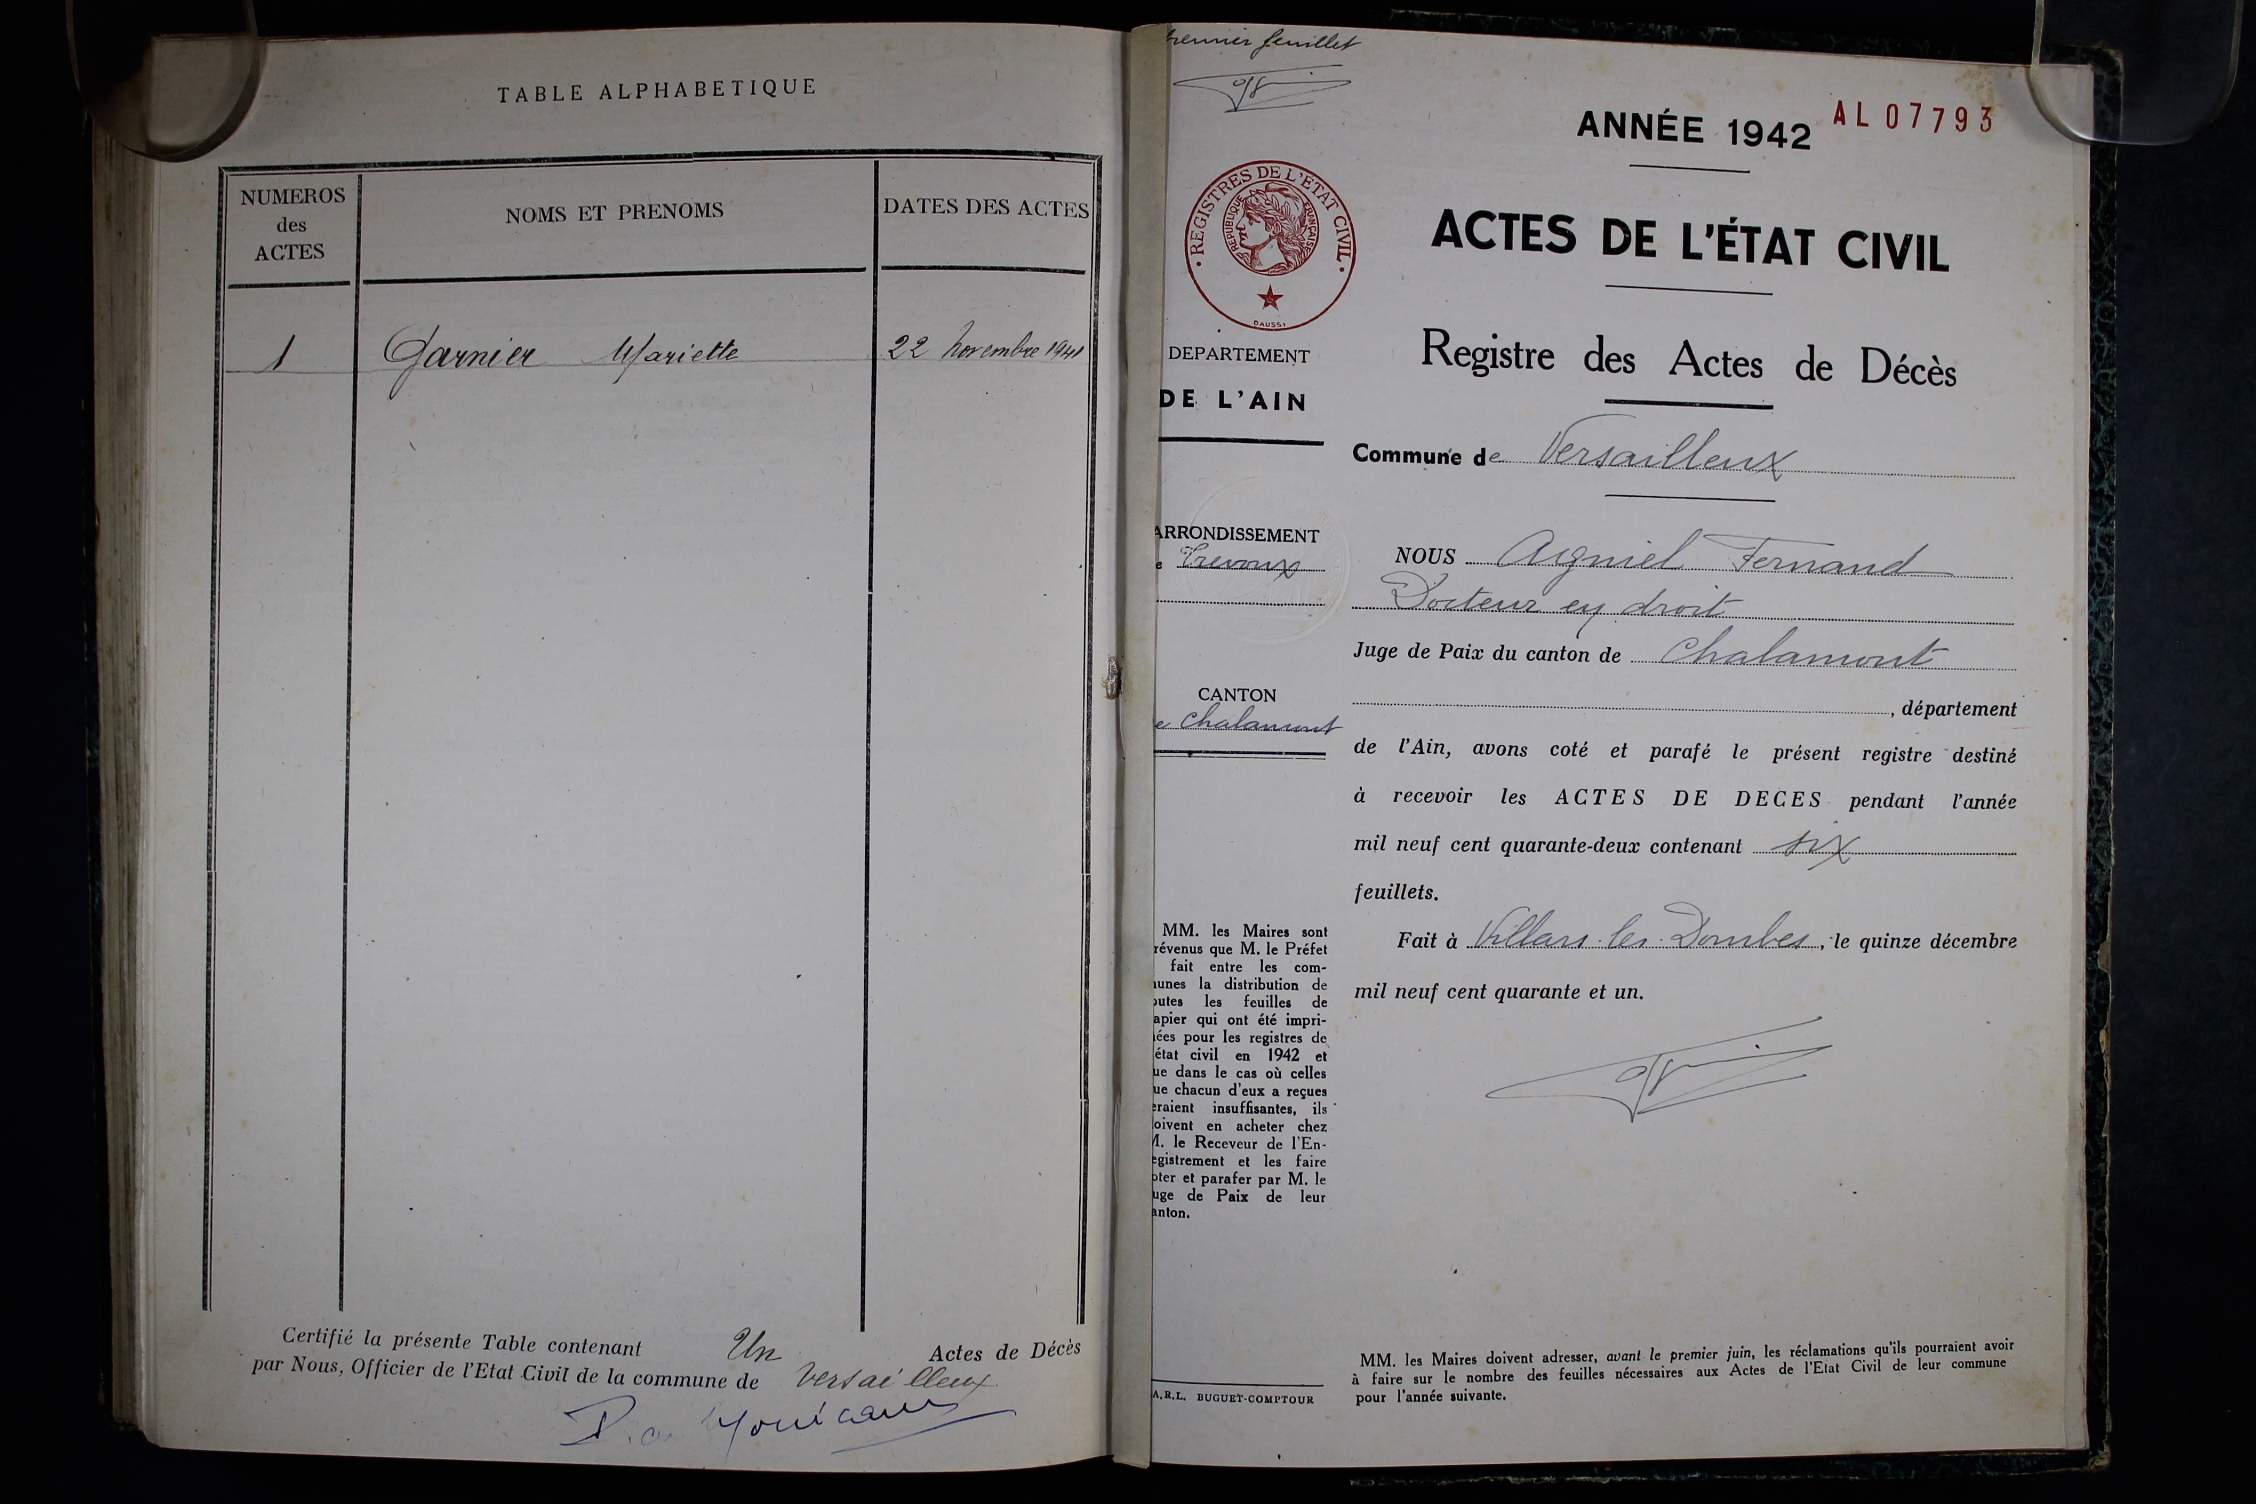 TABLE ALPHABETIQUE
NUMEROS
des
ACTES
NOMS ET PRENOMS
DATES DES ACTES
1 Garnier Mariette 22 novembre 1941
Certifié la présente Table contenant Un Actes de Décès
par Nous, Officier de l'Etat Civil de la commune de Versailleux
premier feuillet
ANNÉE 1942
AL 07793
REGISTRES DE L'ETAT CIVIL
REPUBLIQUE FRANÇAISE
DAUSSY
ACTES DE L'ÉTAT CIVIL
Registre des Actes de Décès
DEPARTEMENT
DE L'AIN
Commune de Versailleux
ARRONDISSEMENT
e Trevoux
NOUS Agniel Fernand
Docteur en droit
Juge de Paix du canton de Chalamont
CANTON
e Chalamont
, département
de l'Ain, avons coté et parafé le présent registre destiné
à recevoir les ACTES DE DECES pendant l'année
mil neuf cent quarante-deux contenant six
feuillets.
Fait à Villars les Dombes, le quinze décembre
mil neuf cent quarante et un.
MM. les Maires sont
révenus que M. le Préfet
fait entre les com-
unes la distribution de
outes les feuilles de
apier qui ont été impri-
ées pour les registres de
état civil en 1942 et
ue dans le cas où celles
ue chacun d'eux a reçues
eraient insuffisantes, ils
oivent en acheter chez
M. le Receveur de l'En-
egistrement et les faire
oter et parafer par M. le
uge de Paix de leur
anton.
A.R.L. BUGUET-COMPTOUR
MM. les Maires doivent adresser, avant le premier juin, les réclamations qu'ils pourraient avoir
à faire sur le nombre des feuilles nécessaires aux Actes de l'Etat Civil de leur commune
pour l'année suivante.